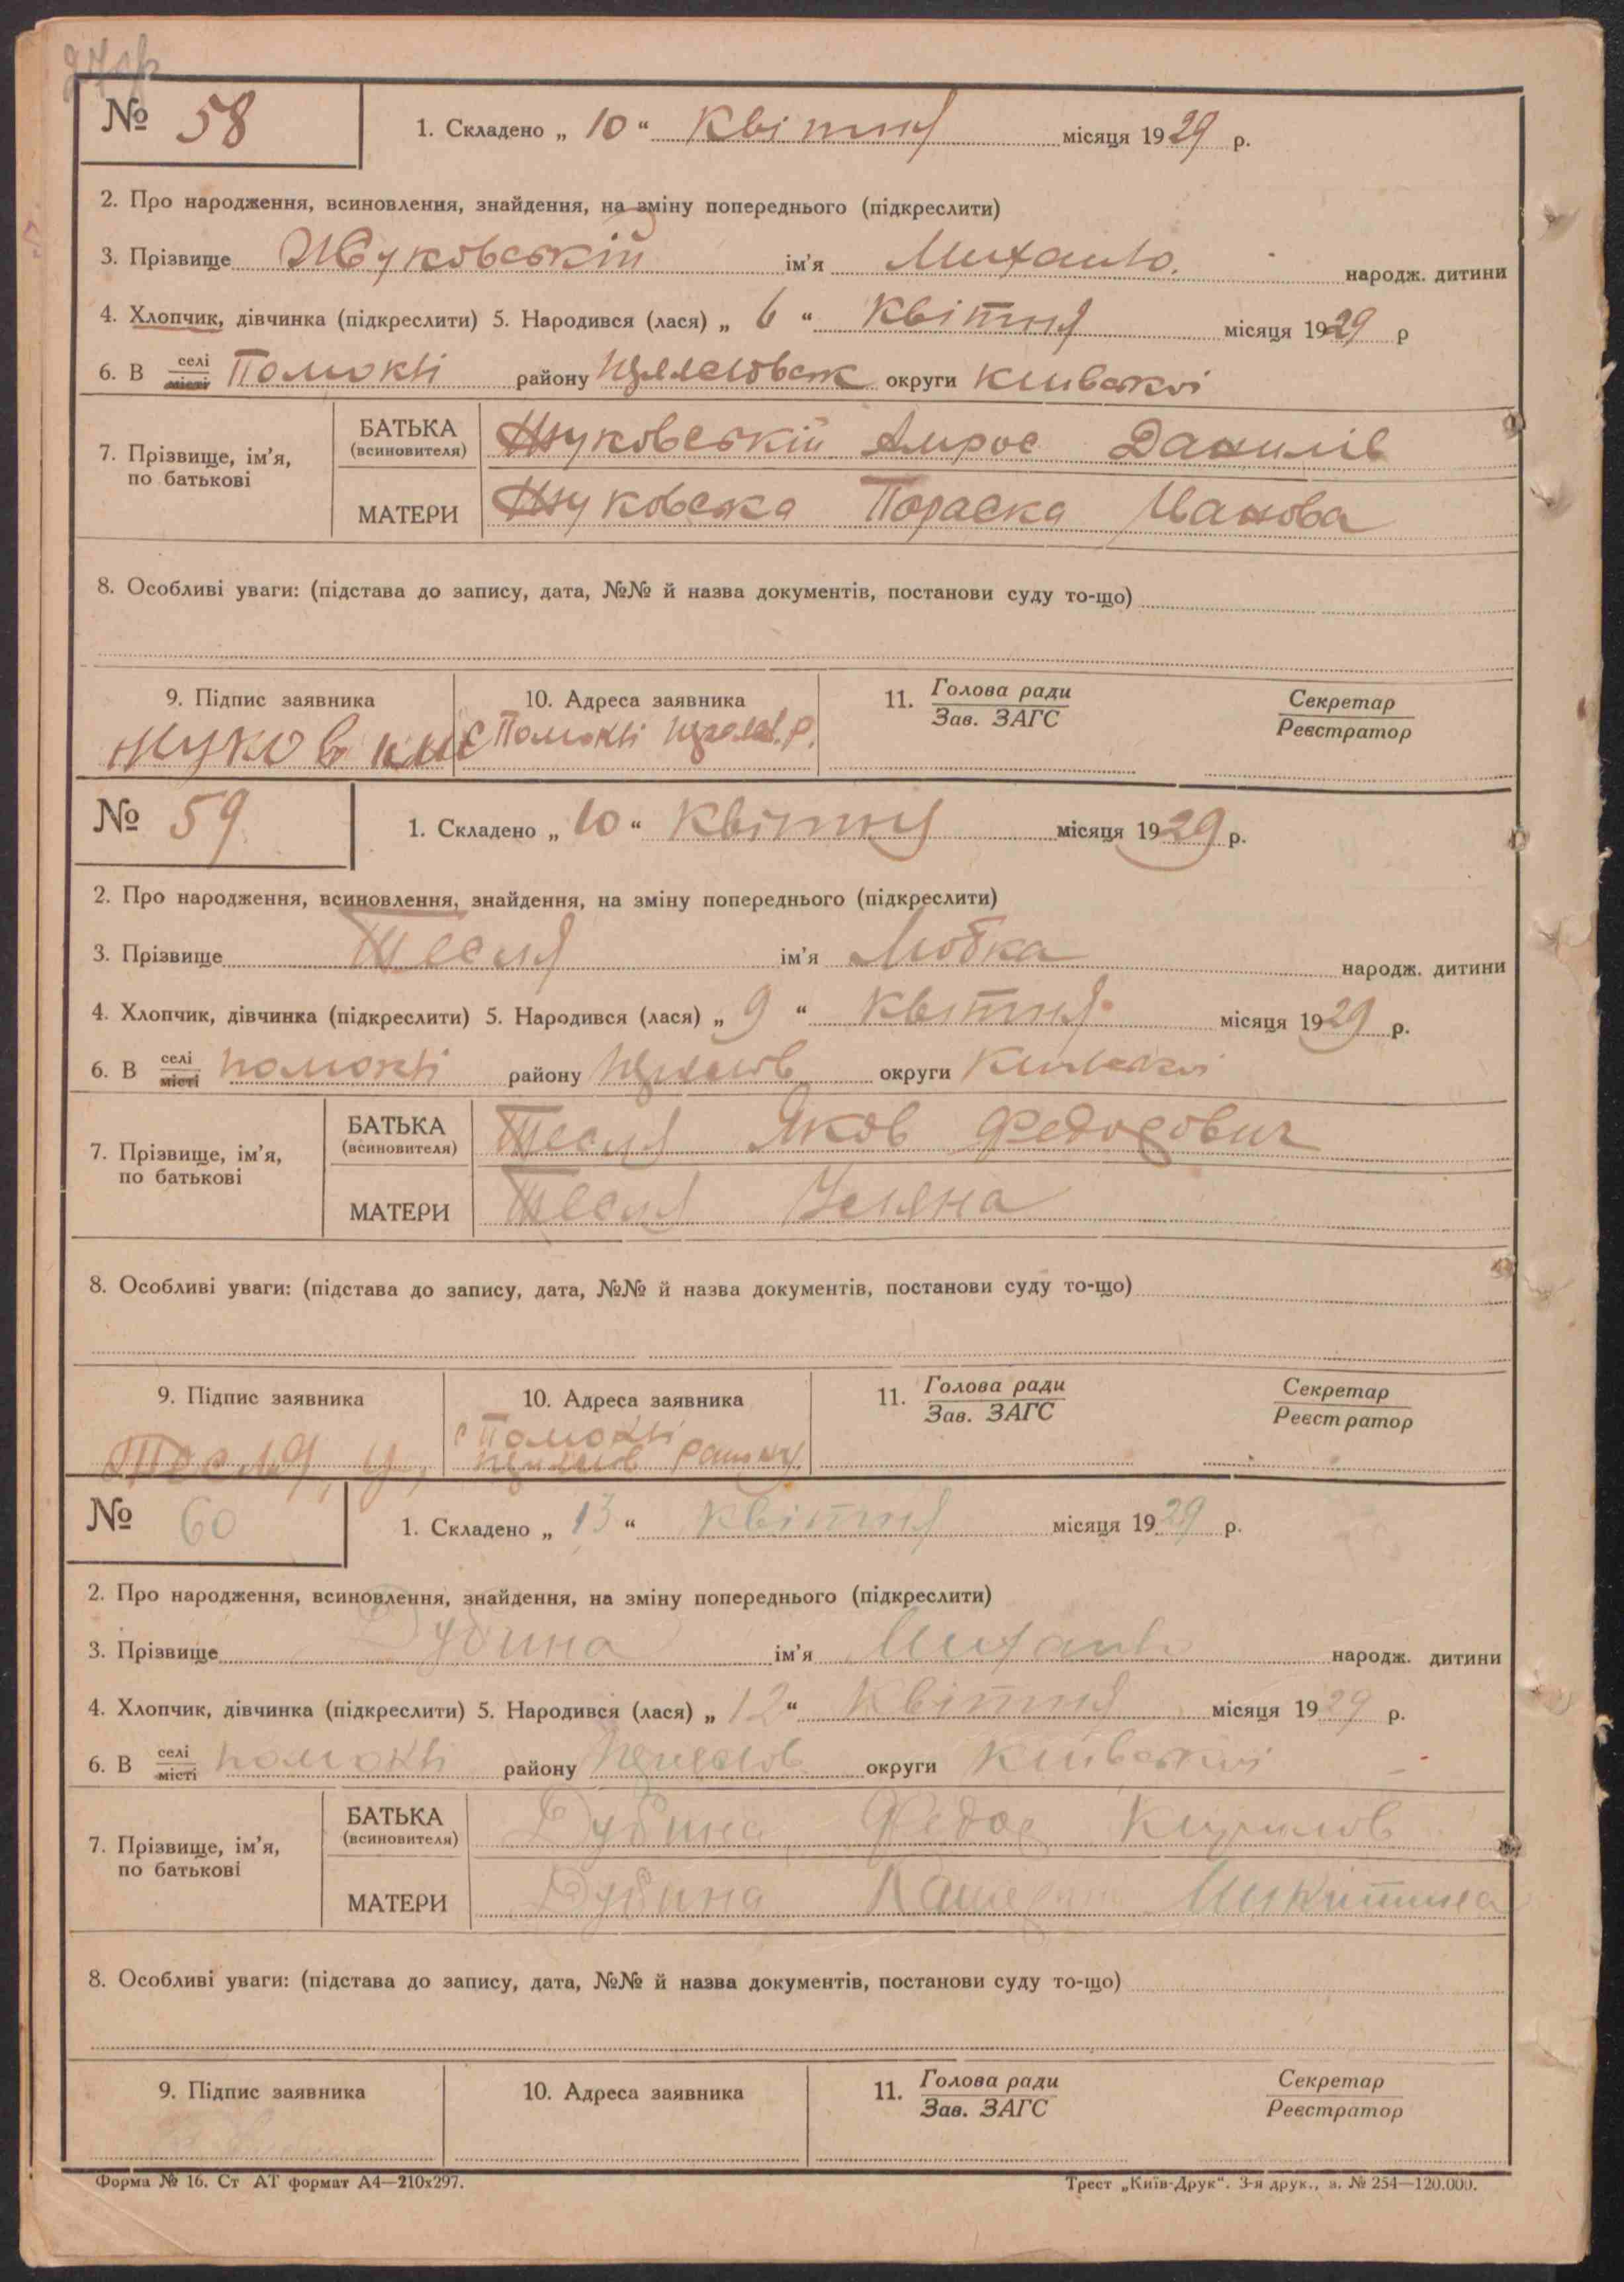 № 58
1. Складено „ 10 “ Квітня місяця 1929 р.
2. Про народження, всиновлення, знайдення, на зміну попереднього (підкреслити)
3. Прізвище Жуковський ім’я Михайло. народж. дитини
4. Хлопчик, дівчинка (підкреслити) 5. Народився (лася) „ 6 “ Квітня місяця 1929 р
6. В селі місті Помоклі району округи Київської
7. Прізвище, ім’я, по батькові
БАТЬКА (всиновителя) Жуковській Амрос Данилів
МАТЕРИ Жуковська Пораска Иванова
8. Особливі уваги: (підстава до запису, дата, №№ й назва документів, постанови суду то-що)
9. Підпис заявника 10. Адреса заявника 11. Голова ради Зав. ЗАГС Секретар Реєстратор
Помоклі
№ 59
1. Складено „ 10 “ Квітня місяця 1929 р.
2. Про народження, всиновлення, знайдення, на зміну попереднього (підкреслити)
3. Прізвище Тесля ім’я Любка народж. дитини
4. Хлопчик, дівчинка (підкреслити) 5. Народився (лася) „ 9 “ Квітня місяця 1929 р.
6. В селі місті Помоклі району округи Київської
7. Прізвище, ім’я, по батькові
БАТЬКА (всиновителя) Тесля Яков Федосович
МАТЕРИ Тесля Уляна
8. Особливі уваги: (підстава до запису, дата, №№ й назва документів, постанови суду то-що)
9. Підпис заявника 10. Адреса заявника 11. Голова ради Зав. ЗАГС Секретар Реєстратор
с Помоклі
Тесля
№ 60
1. Складено „ 13 “ Квітня місяця 1929 р.
2. Про народження, всиновлення, знайдення, на зміну попереднього (підкреслити)
3. Прізвище Дубина ім’я Михайло народж. дитини
4. Хлопчик, дівчинка (підкреслити) 5. Народився (лася) „ 12 “ Квітня місяця 1929 р.
6. В селі місті Помоклі району округи Київської
7. Прізвище, ім’я, по батькові
БАТЬКА (всиновителя) Дубина Федос Кирилов
МАТЕРИ Дубина Микитина
8. Особливі уваги: (підстава до запису, дата, №№ й назва документів, постанови суду то-що)
9. Підпис заявника 10. Адреса заявника 11. Голова ради Зав. ЗАГС Секретар Реєстратор
Форма № 16. Ст АТ формат А4—210х297. Трест „Київ-Друк“. 3-я друк., з. № 254—120.000.